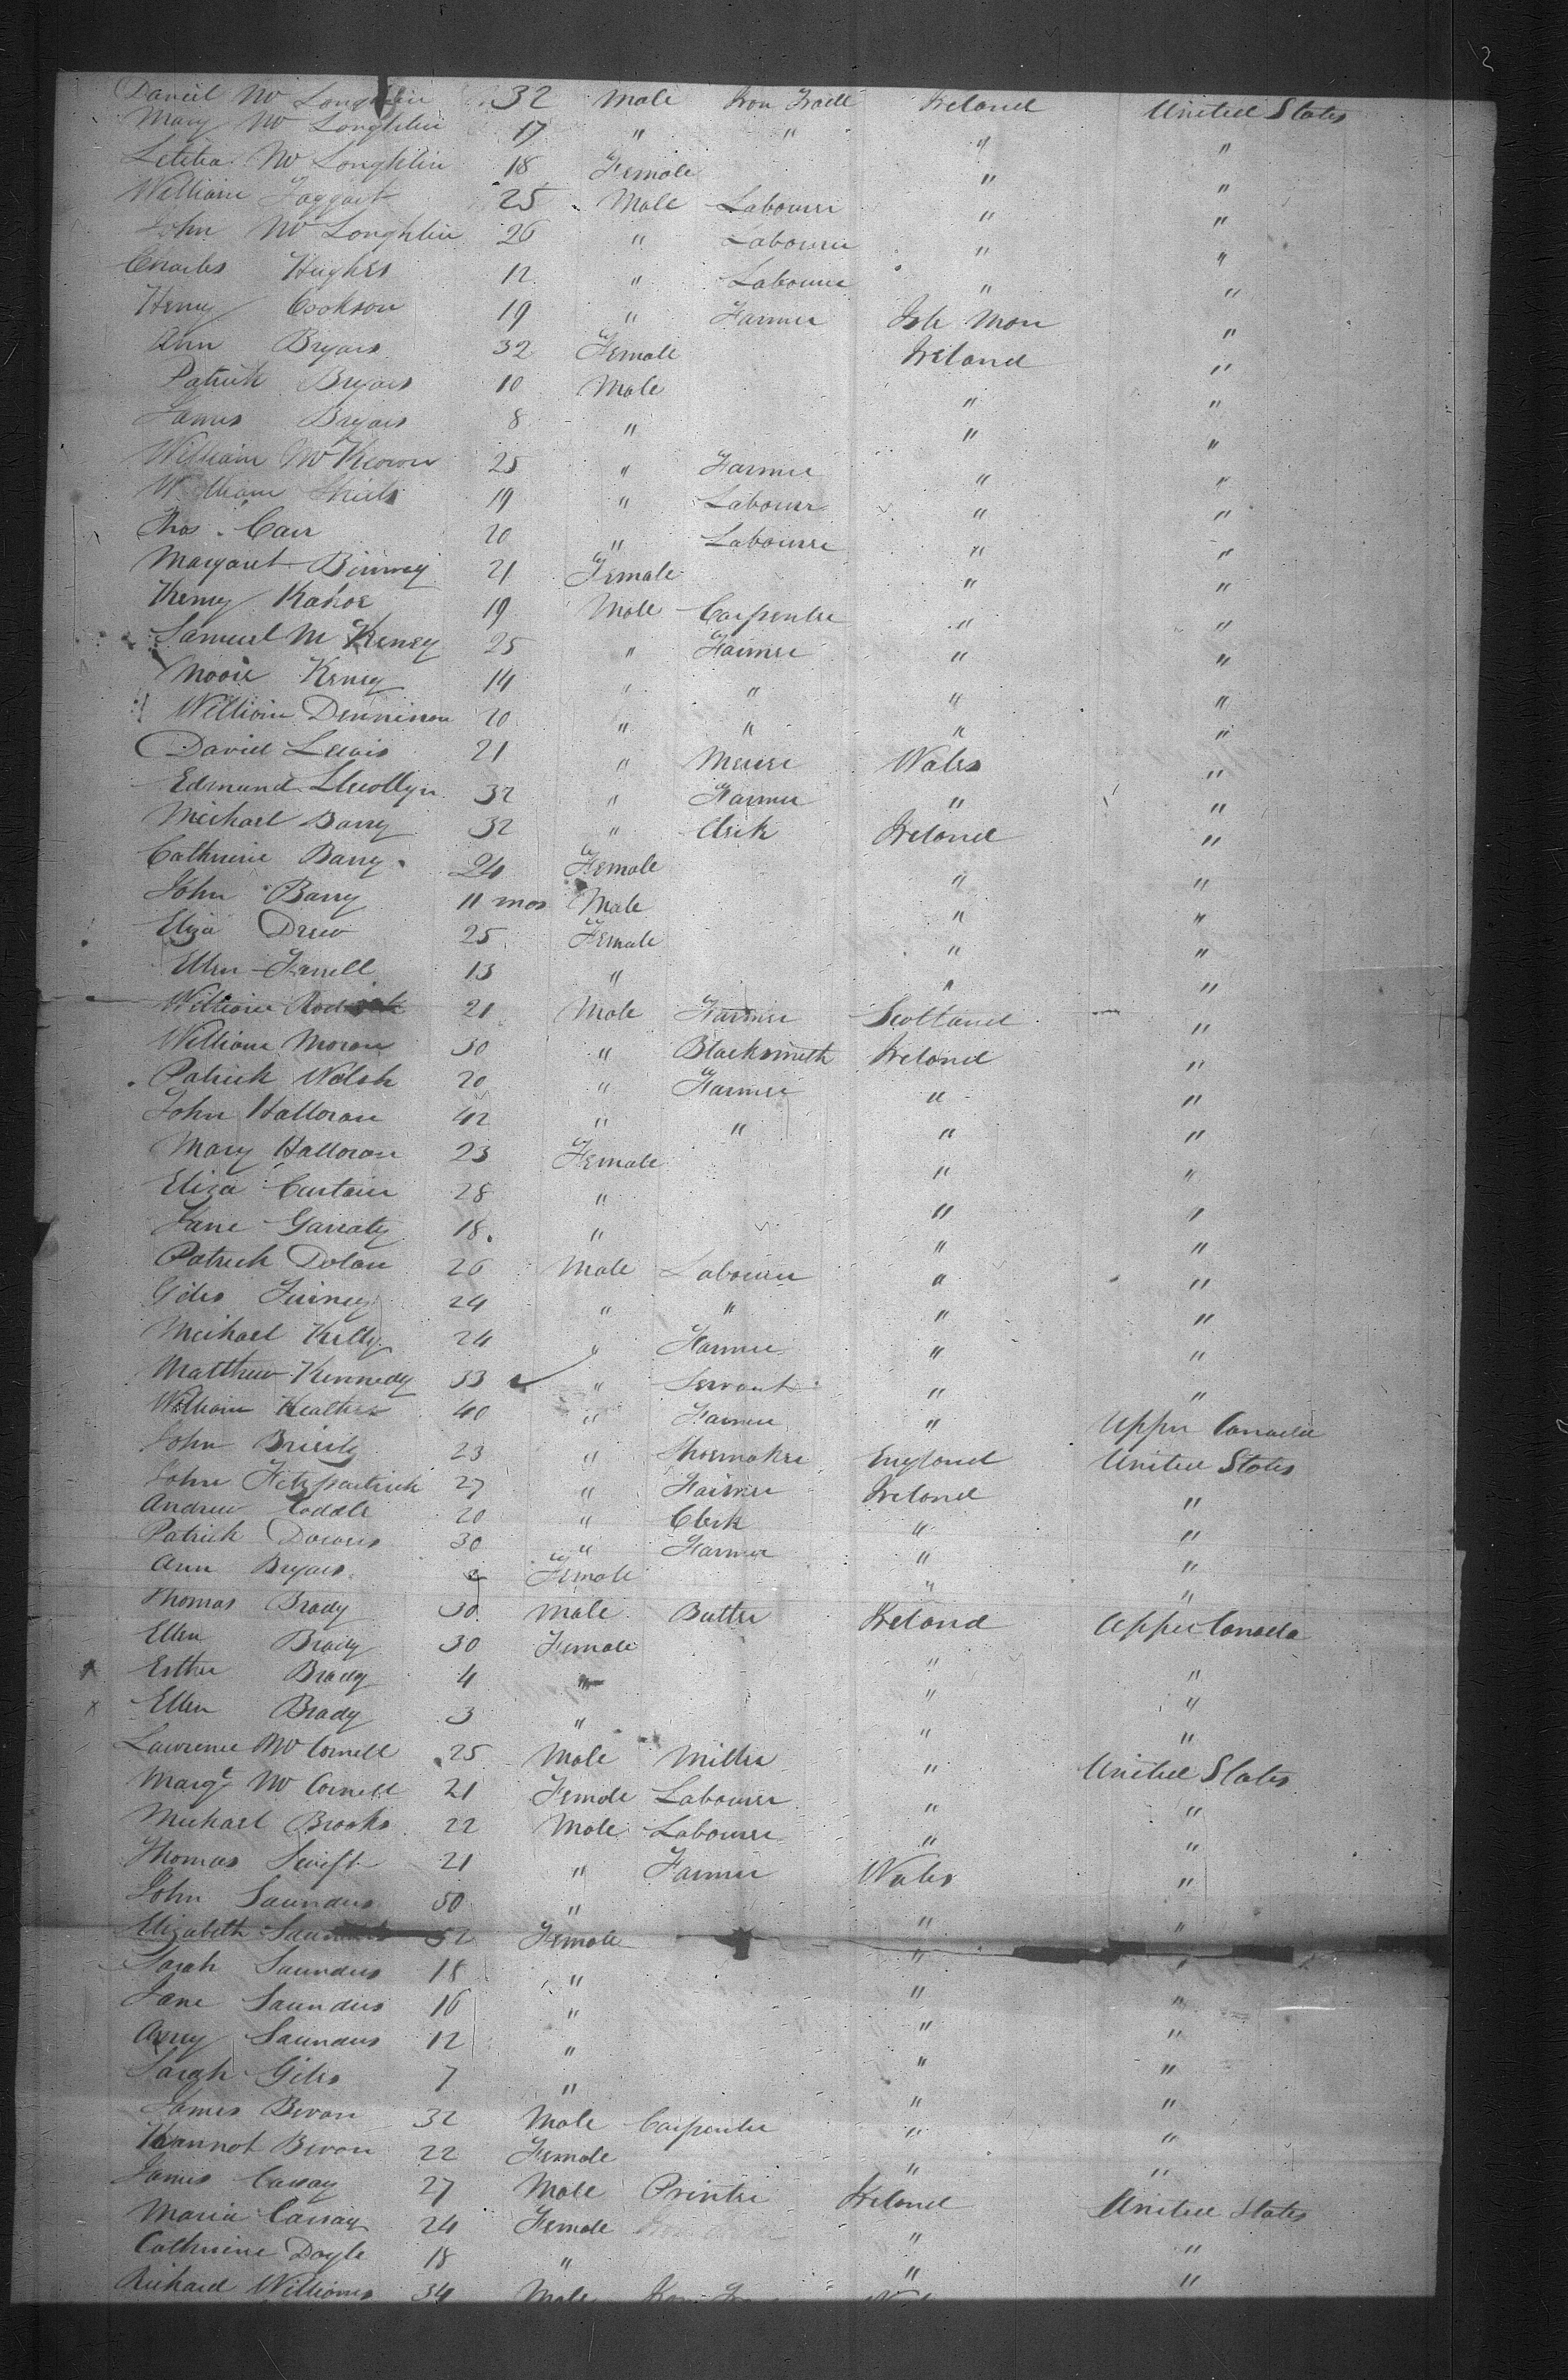 2
Daniel Mc Loughlin 32 Male Iron Trade Ireland United States
Mary Mc Loughlin 17 " " " "
Letitia Mc Loughlin 18 Female " "
William Taggart 25 Male Labourer " "
John Mc Loughlin 26 " Labourer " "
Charles Hughes 12 " Labourer " "
Henry Cookson 19 " Farmer Isle Man "
Ann Bryars 32 Female Ireland "
Patrick Bryars 10 Male " "
James Bryars 8 " " "
William McKeown 25 " Farmer " "
William Shiels 19 " Labourer " "
Thos. Carr 20 " Labourer " "
Margaret 21 Female " "
Henry Kahoe 19 Male Carpenter " "
Samuel M Keney 25 " Farmer " "
Keney 14 " " " "
William Dennison 20 " " " "
David Lewis 21 " Wales "
Edmund Llewollyn 32 " Farmer " "
Meichael Barry 32 " Clerk Ireland "
Cathrine Barry 24 Female " "
John Barry 11 mos Male " "
Eliza Drew 25 Female " "
Ellen Farrell 13 " " "
William 21 Male Farmer Scotland "
William Moran 30 " Blacksmith Ireland "
Patrick Walsh 20 " Farmer " "
John Halloran 42 " " " "
Mary Halloran 23 Female " "
Eliza Curtain 28 " " "
Jane Garraty 18 " " "
Patrick Dolan 26 Male Labourer " "
Giles 24 " " " "
Meihael Kelly 24 " Farmer " "
Matthew Kennedy 33 " Servant " "
William 40 " Farmer " Upper Canada
John Brierly 23 " Shoemaker England United States
John Fitzpatrick 27 " Farmer Ireland "
Andrew Coddle 20 " Clerk " "
Patrick Downs 30 " Farmer " "
Ann Bryars Female " "
Thomas Brady 30 Male Butler Ireland Upper Canada
Ellen Brady 30 Female " "
Esther Brady 4 " " "
Ellen Brady 3 " " "
Lawrence Mc Cornell 25 Male Miller " United States
Margt Mc Cornell 21 Female Labourer " "
Michael Brooks 22 Male Labourer " "
Thomas Swift 21 " Farmer Wales "
John Saunders 50 " " "
Elizabeth Saunders 52 Female " "
Sarah Saunders 18 " " "
Jane Saunders 16 " " "
Amy Saunders 12 " " "
Sargh Giles 7 " " "
James Bevan 32 Male Carpenter " "
Hannah Bevan 22 Female " "
James Cassay 27 Male Printer Ireland United States
Maria Cassay 24 Female " "
Cathrine Doyle 18 " " "
Richard Williams 34 Male